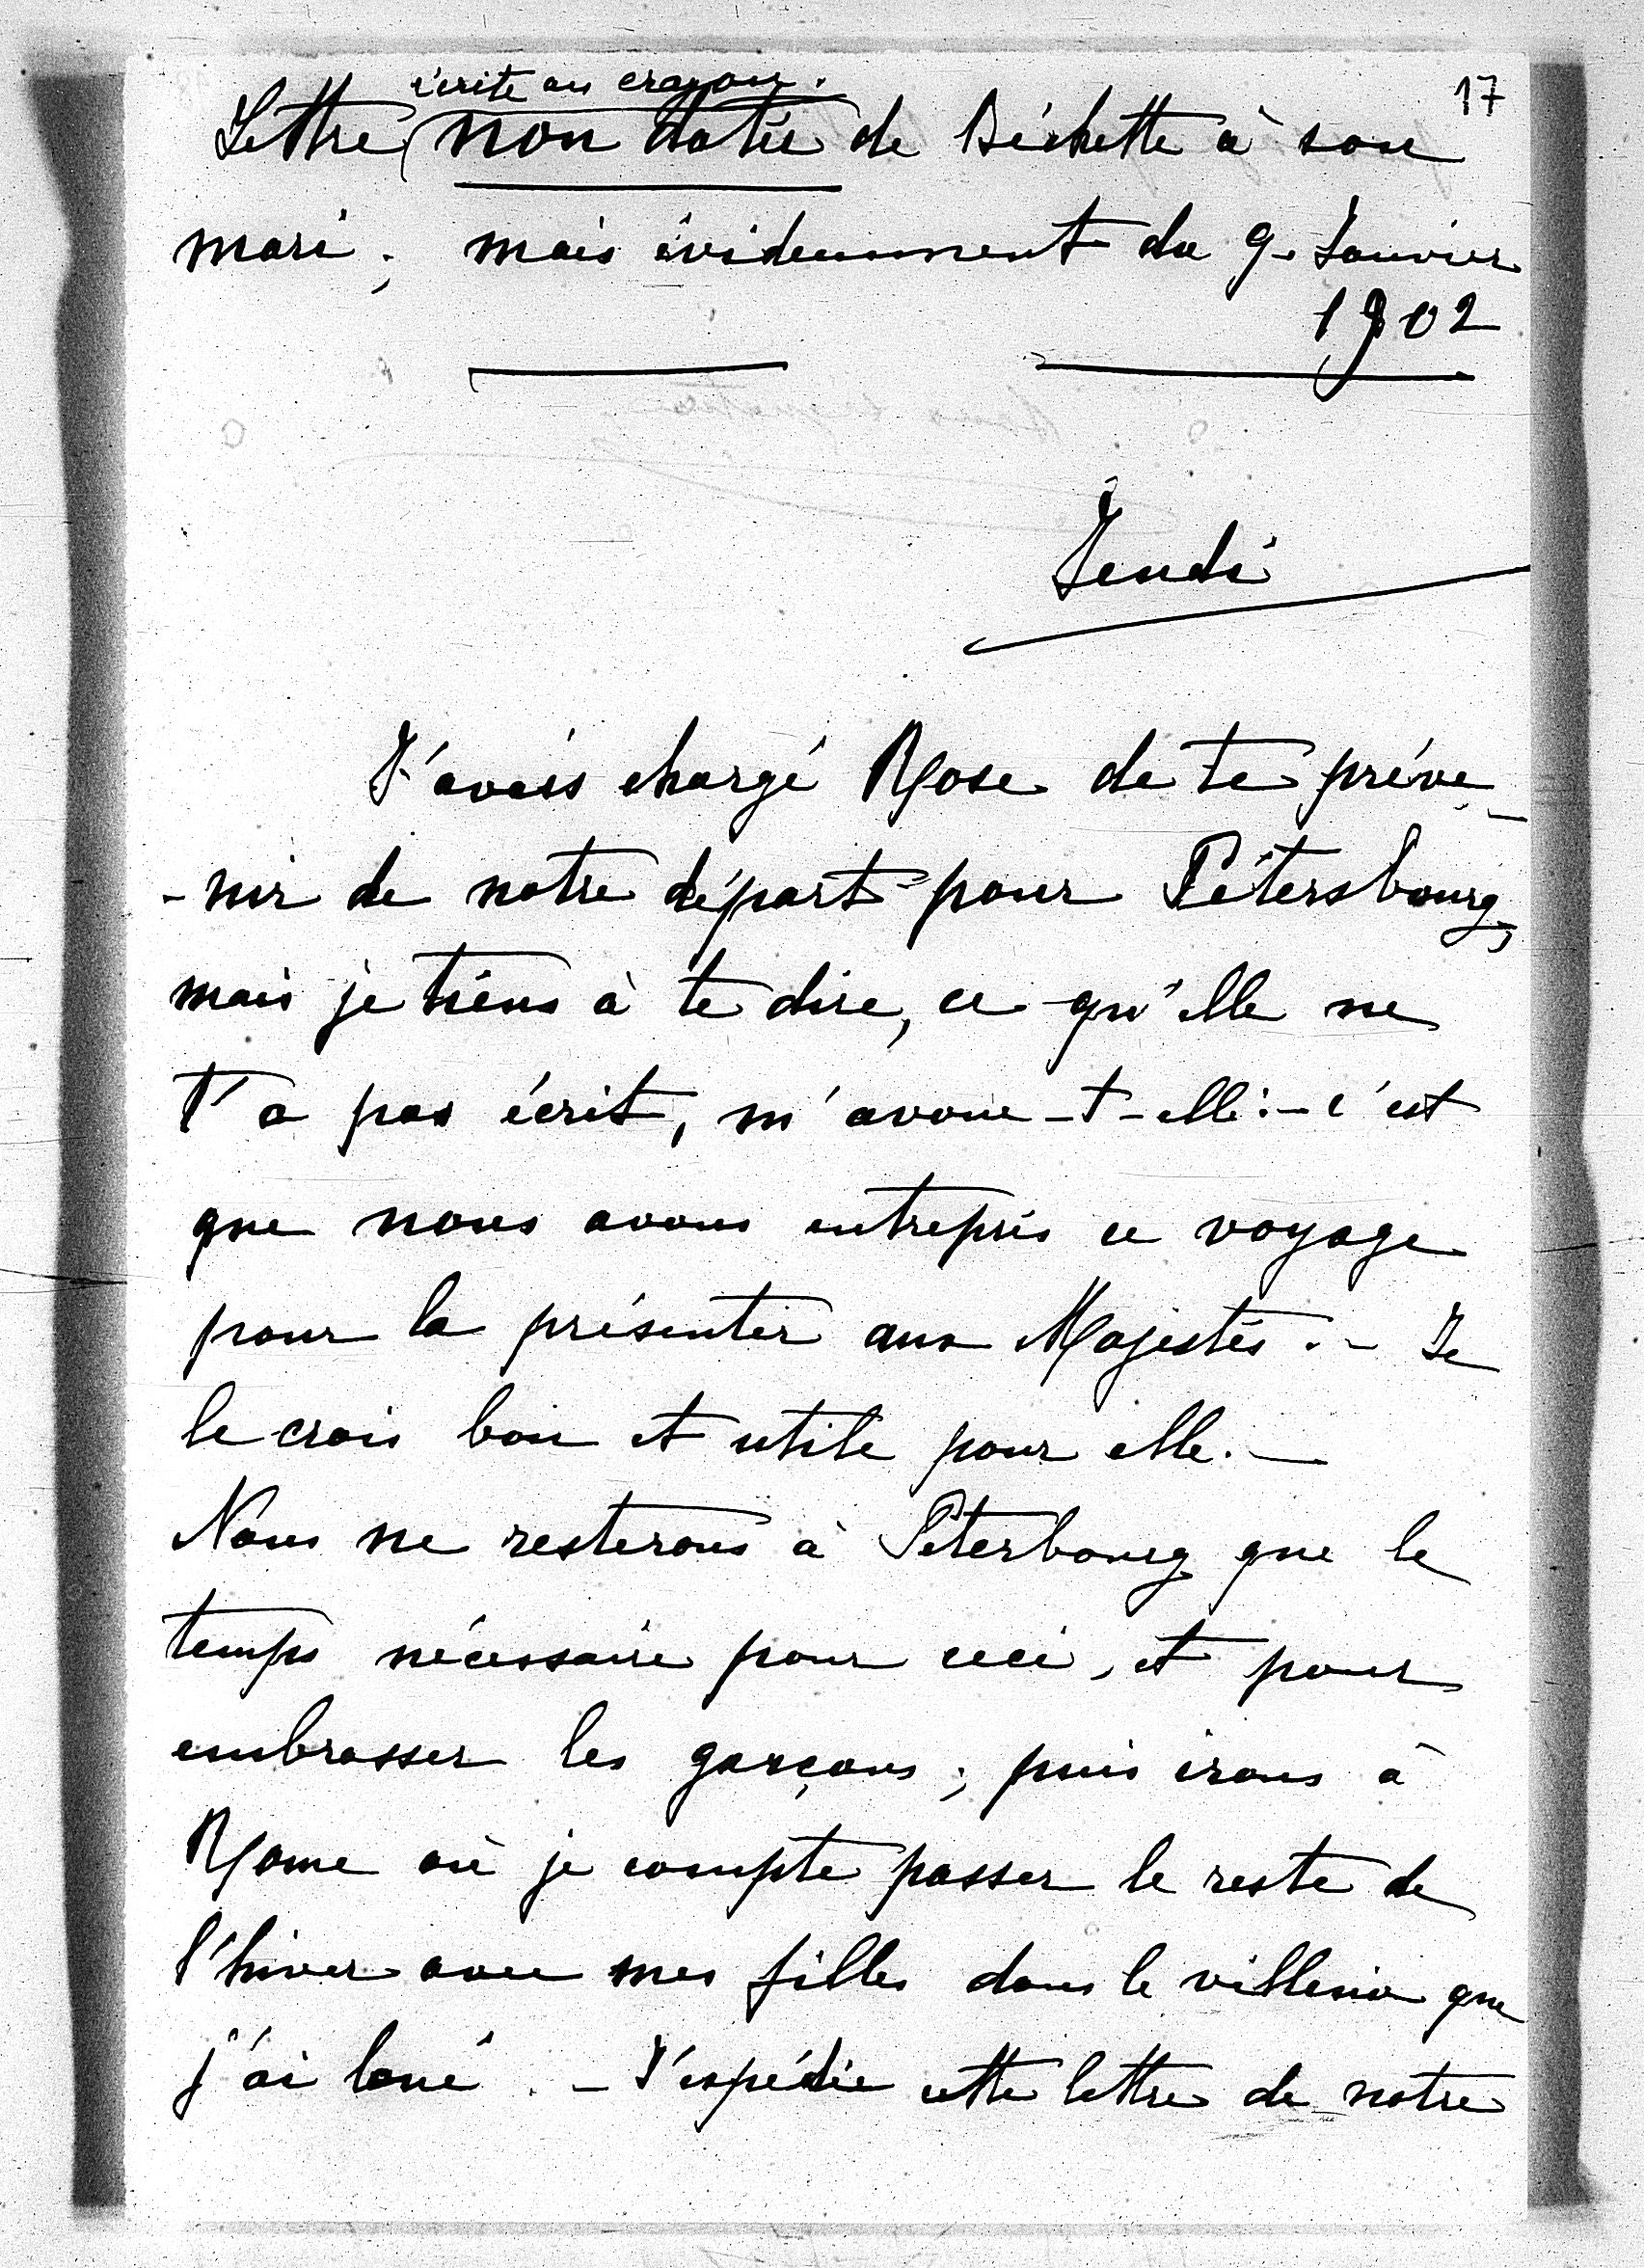 17
écrite au crayon.
Lettre (non datée de Béchette à son
mari; mais évidemment du 9. Janvier
1902
Jeudi
J'avais chargé Rose de te préve-
-nir de notre départ pour Pétersbourg,
mais je tiens à te dire, ce qu'elle ne
t'a pas écrit, m'avoue-t-elle:- c'est
que nous avons entrepris ce voyage
pour la présenter aux Majestés. - Je
le crois bon et utile pour elle. -
Nous ne resterons à Péterbourg que le
temps nécessaire pour ceci, et pour
embrasser les garçons; puis irons à
Rome où je compte passer le reste de
l'hiver avec mes filles dans le villino que
j'ai loué. - J'expédie cette lettre de notre